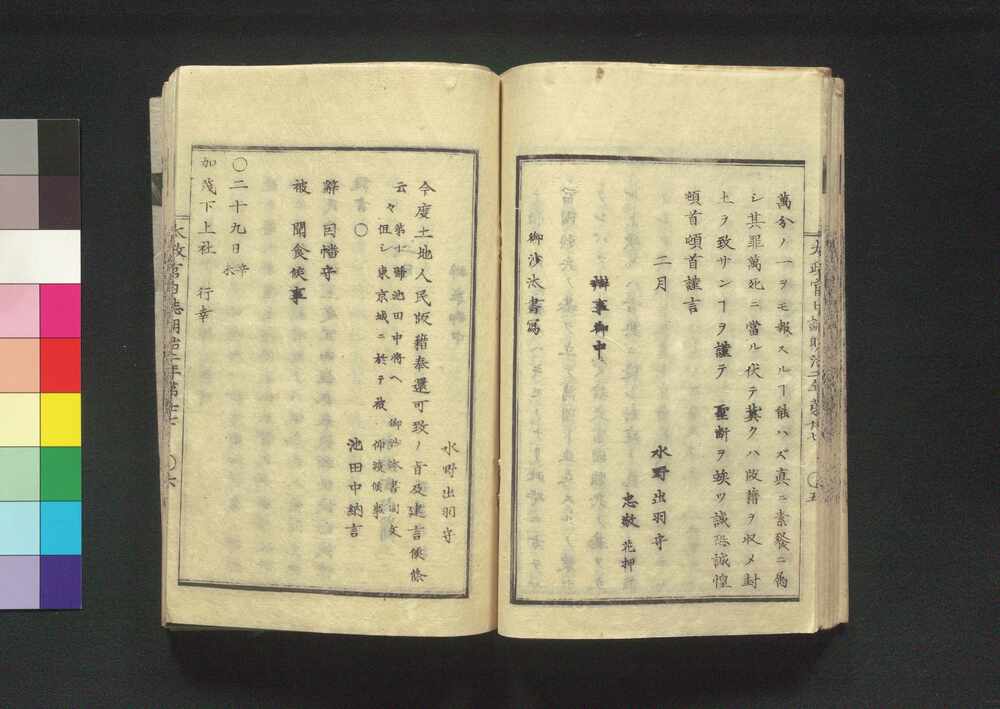 萬分ノ一ヲモ報スルヿ能ハズ真ニ素餐ニ屬
シ其罪萬死ニ當ル伏テ冀クハ版籍ヲ収メ封
土ヲ致サンヿヲ謹テ　聖断ヲ竢ツ誠恐誠惶
頓首頓首謹言
二月
水野出羽守
忠敬 花押
辨事御中
御沙汰書寫
水野出羽守
今度土地人民版籍奉還可致ノ旨及建言候條
云々 第七 歸池田中將ヘ 御沙汰書同文
但シ東京城ニ於テ被 仰渡候事
〇
池田中納言
辭因幡守
被　聞食候事
〇二十九日 辛未
加茂下上社　行幸
太政官日誌明治二年第
〇五
太政官日誌明治二年第
〇六